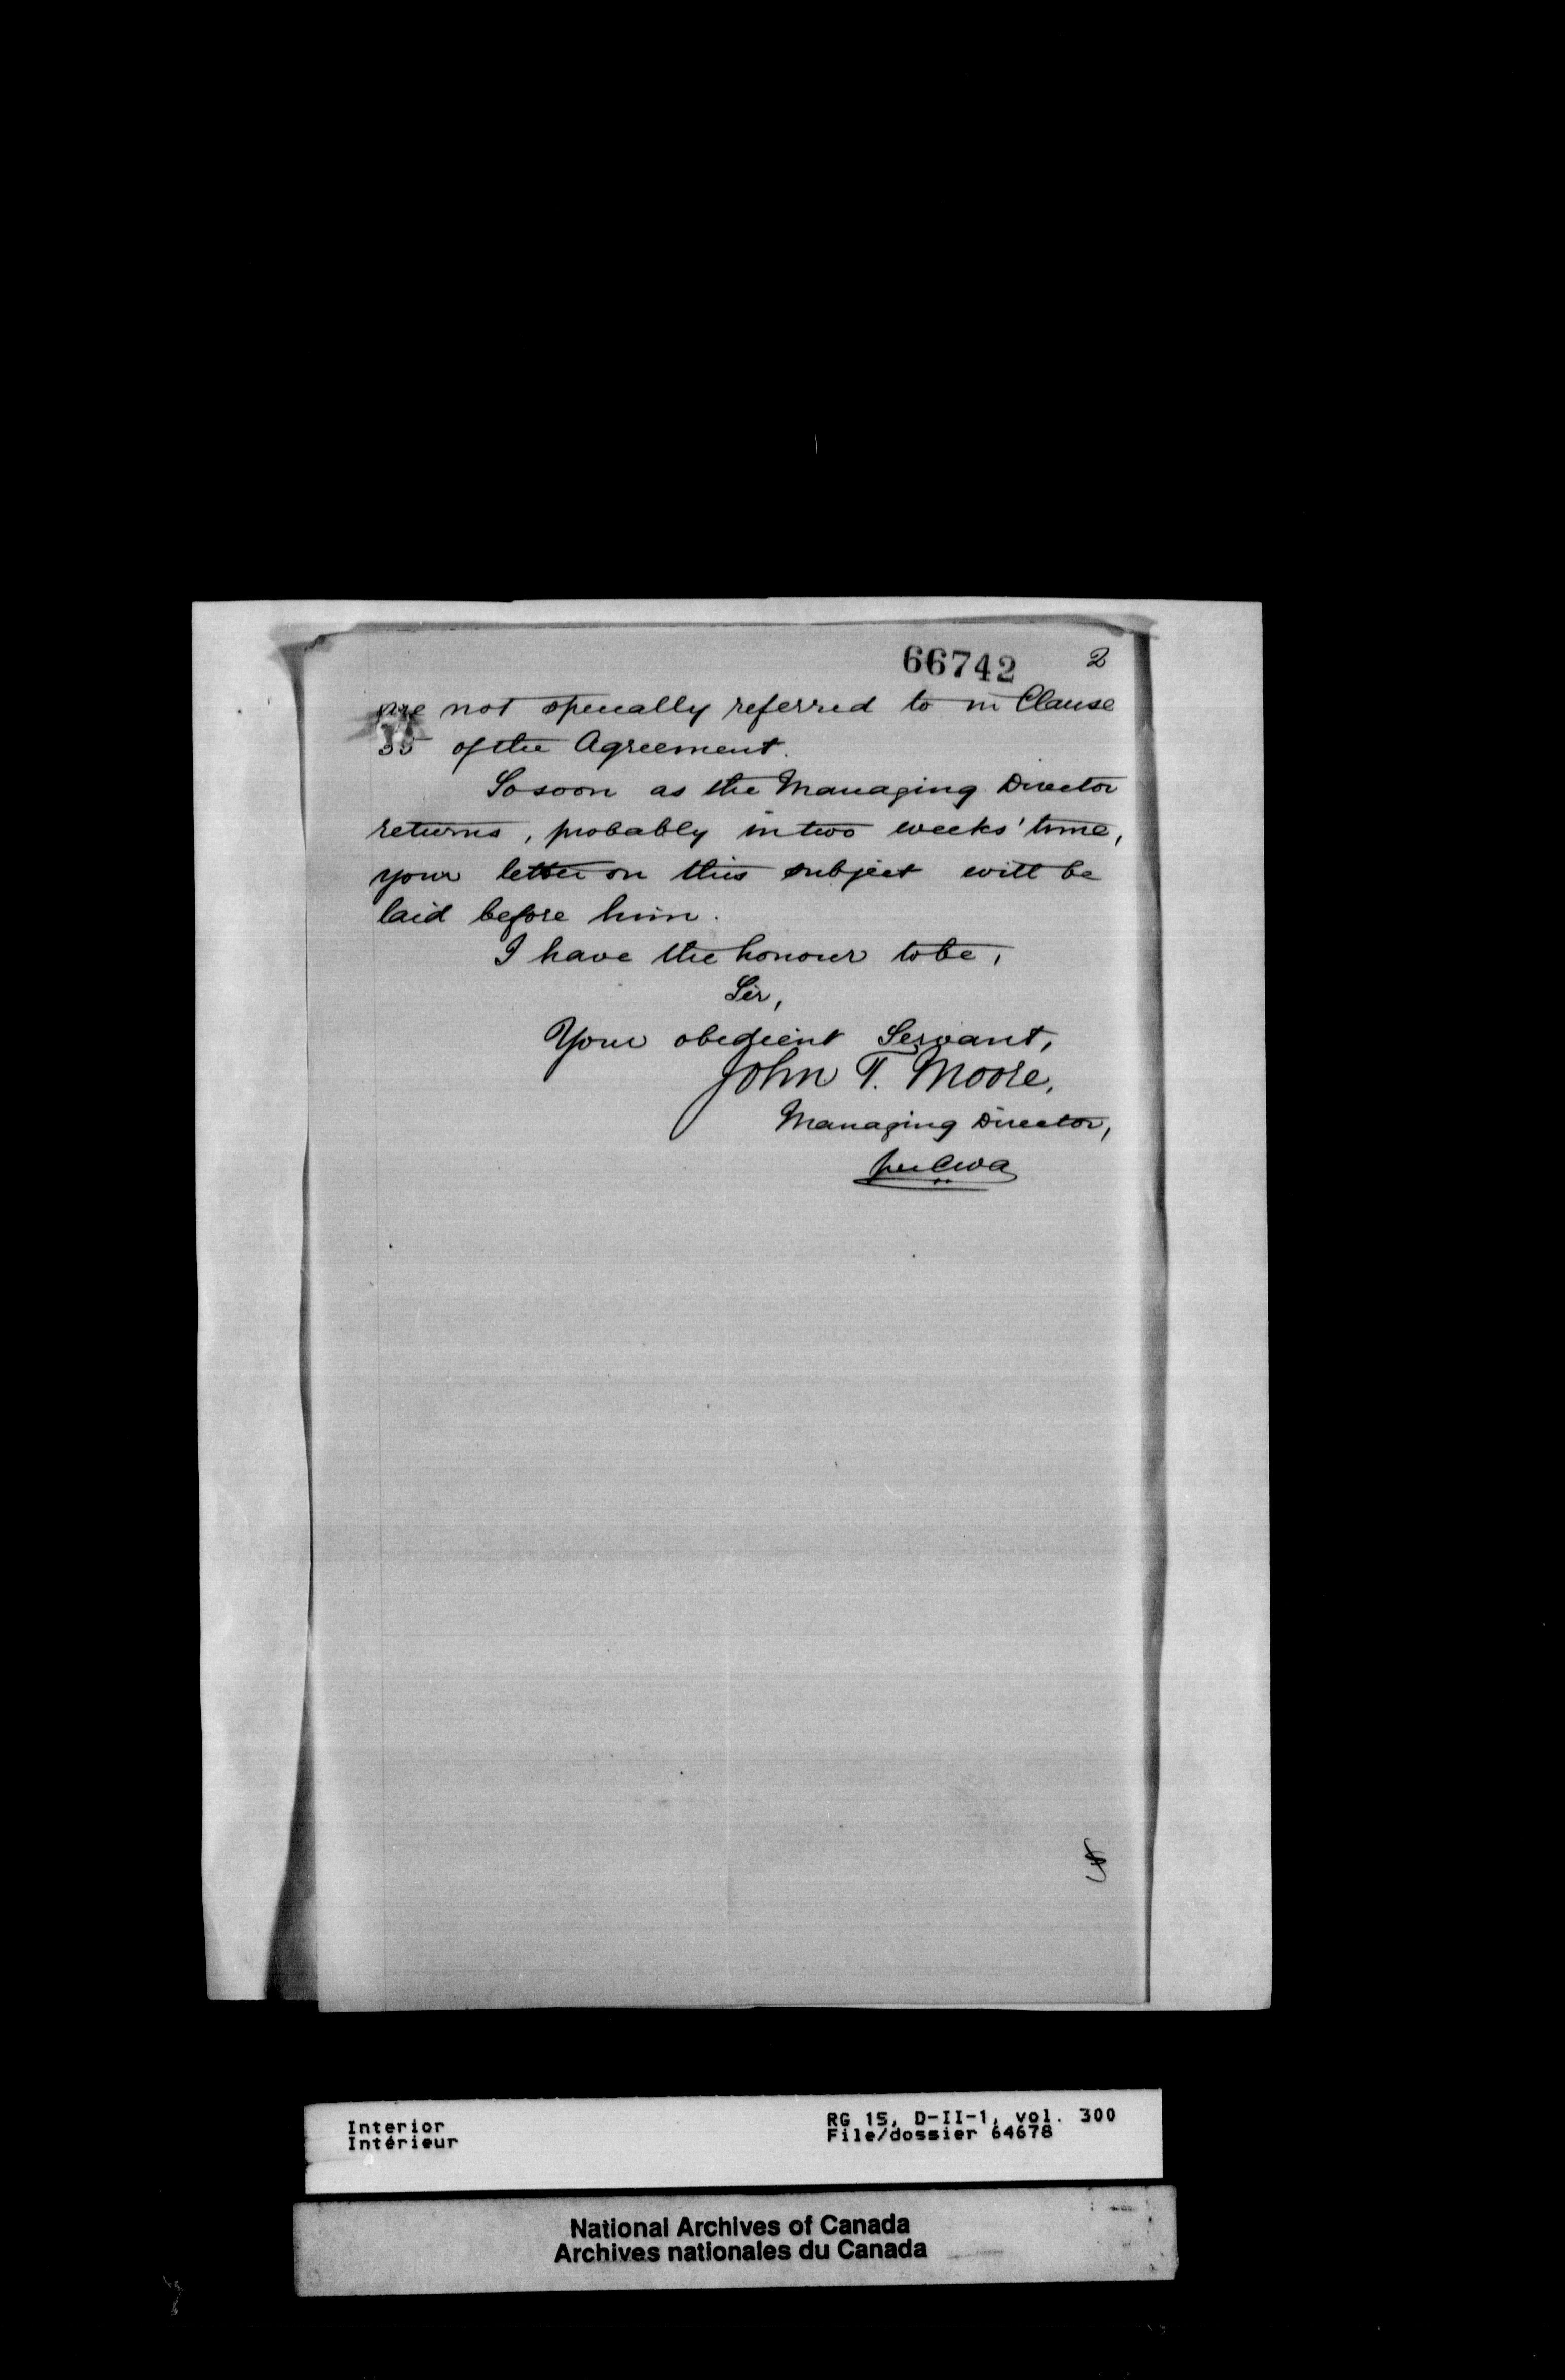 66742 2
are not specially referred to in Clause
35 of the Agreement.
So soon as the Managing Director
returns, probably in two weeks' time,
your letter on this subject will be
laid before him.
I have the honour to be,
Sir,
Your obedient Servant,
John T. Moore,
Managing Director,
per
Interior
Intérieur
RG 15, D-II-1, vol. 300
File/dossier 64678
National Archives of Canada
Archives nationales du Canada